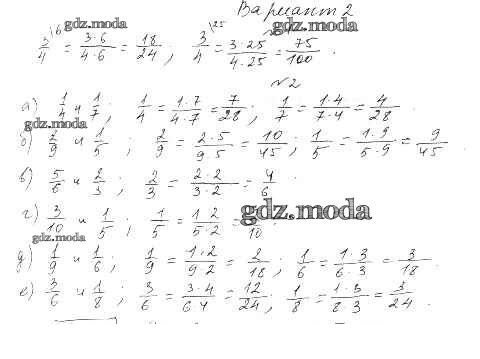 Вариант 2
gdz.moda gdz.moda
3/4 \6 = 3·6/4·6 = 18/24 ; 3/4 \25 = 3·25/4·25 = 75/100 .
№2
а) 1/4 и 1/7 ; 1/4 = 1·7/4·7 = 7/28 ; 1/7 = 1·4/7·4 = 4/28 .
gdz.moda
б) 2/9 и 1/5 ; 2/9 = 2·5/9·5 = 10/45 ; 1/5 = 1·9/5·9 = 9/45 .
в) 5/6 и 2/3 ; 2/3 = 2·2/3·2 = 4/6
г) 3/10 и 1/5 ; 1/5 = 1·2/5·2 = /10 .
gdz.moda
gdz.moda
д) 1/9 и 1/6 ; 1/9 = 1·2/9·2 = 2/18 ; 1/6 = 1·3/6·3 = 3/18 .
е) 3/6 и 1/8 ; 3/6 = 3·4/6·4 = 12/24 ; 1/8 = 1·3/8·3 = 3/24 .